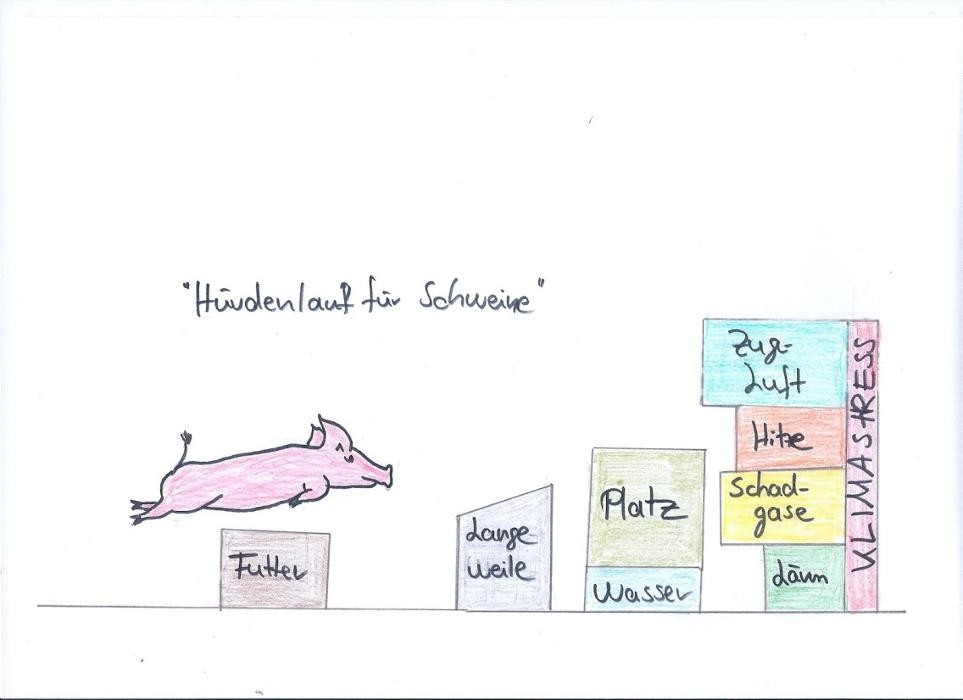 "Hürdenlauf für Schweine"
Futter
Lange
weile
Platz
Wasser
Zug-
Luft
Hitze
Schad-
gase
Lärm
KLIMASTRESS